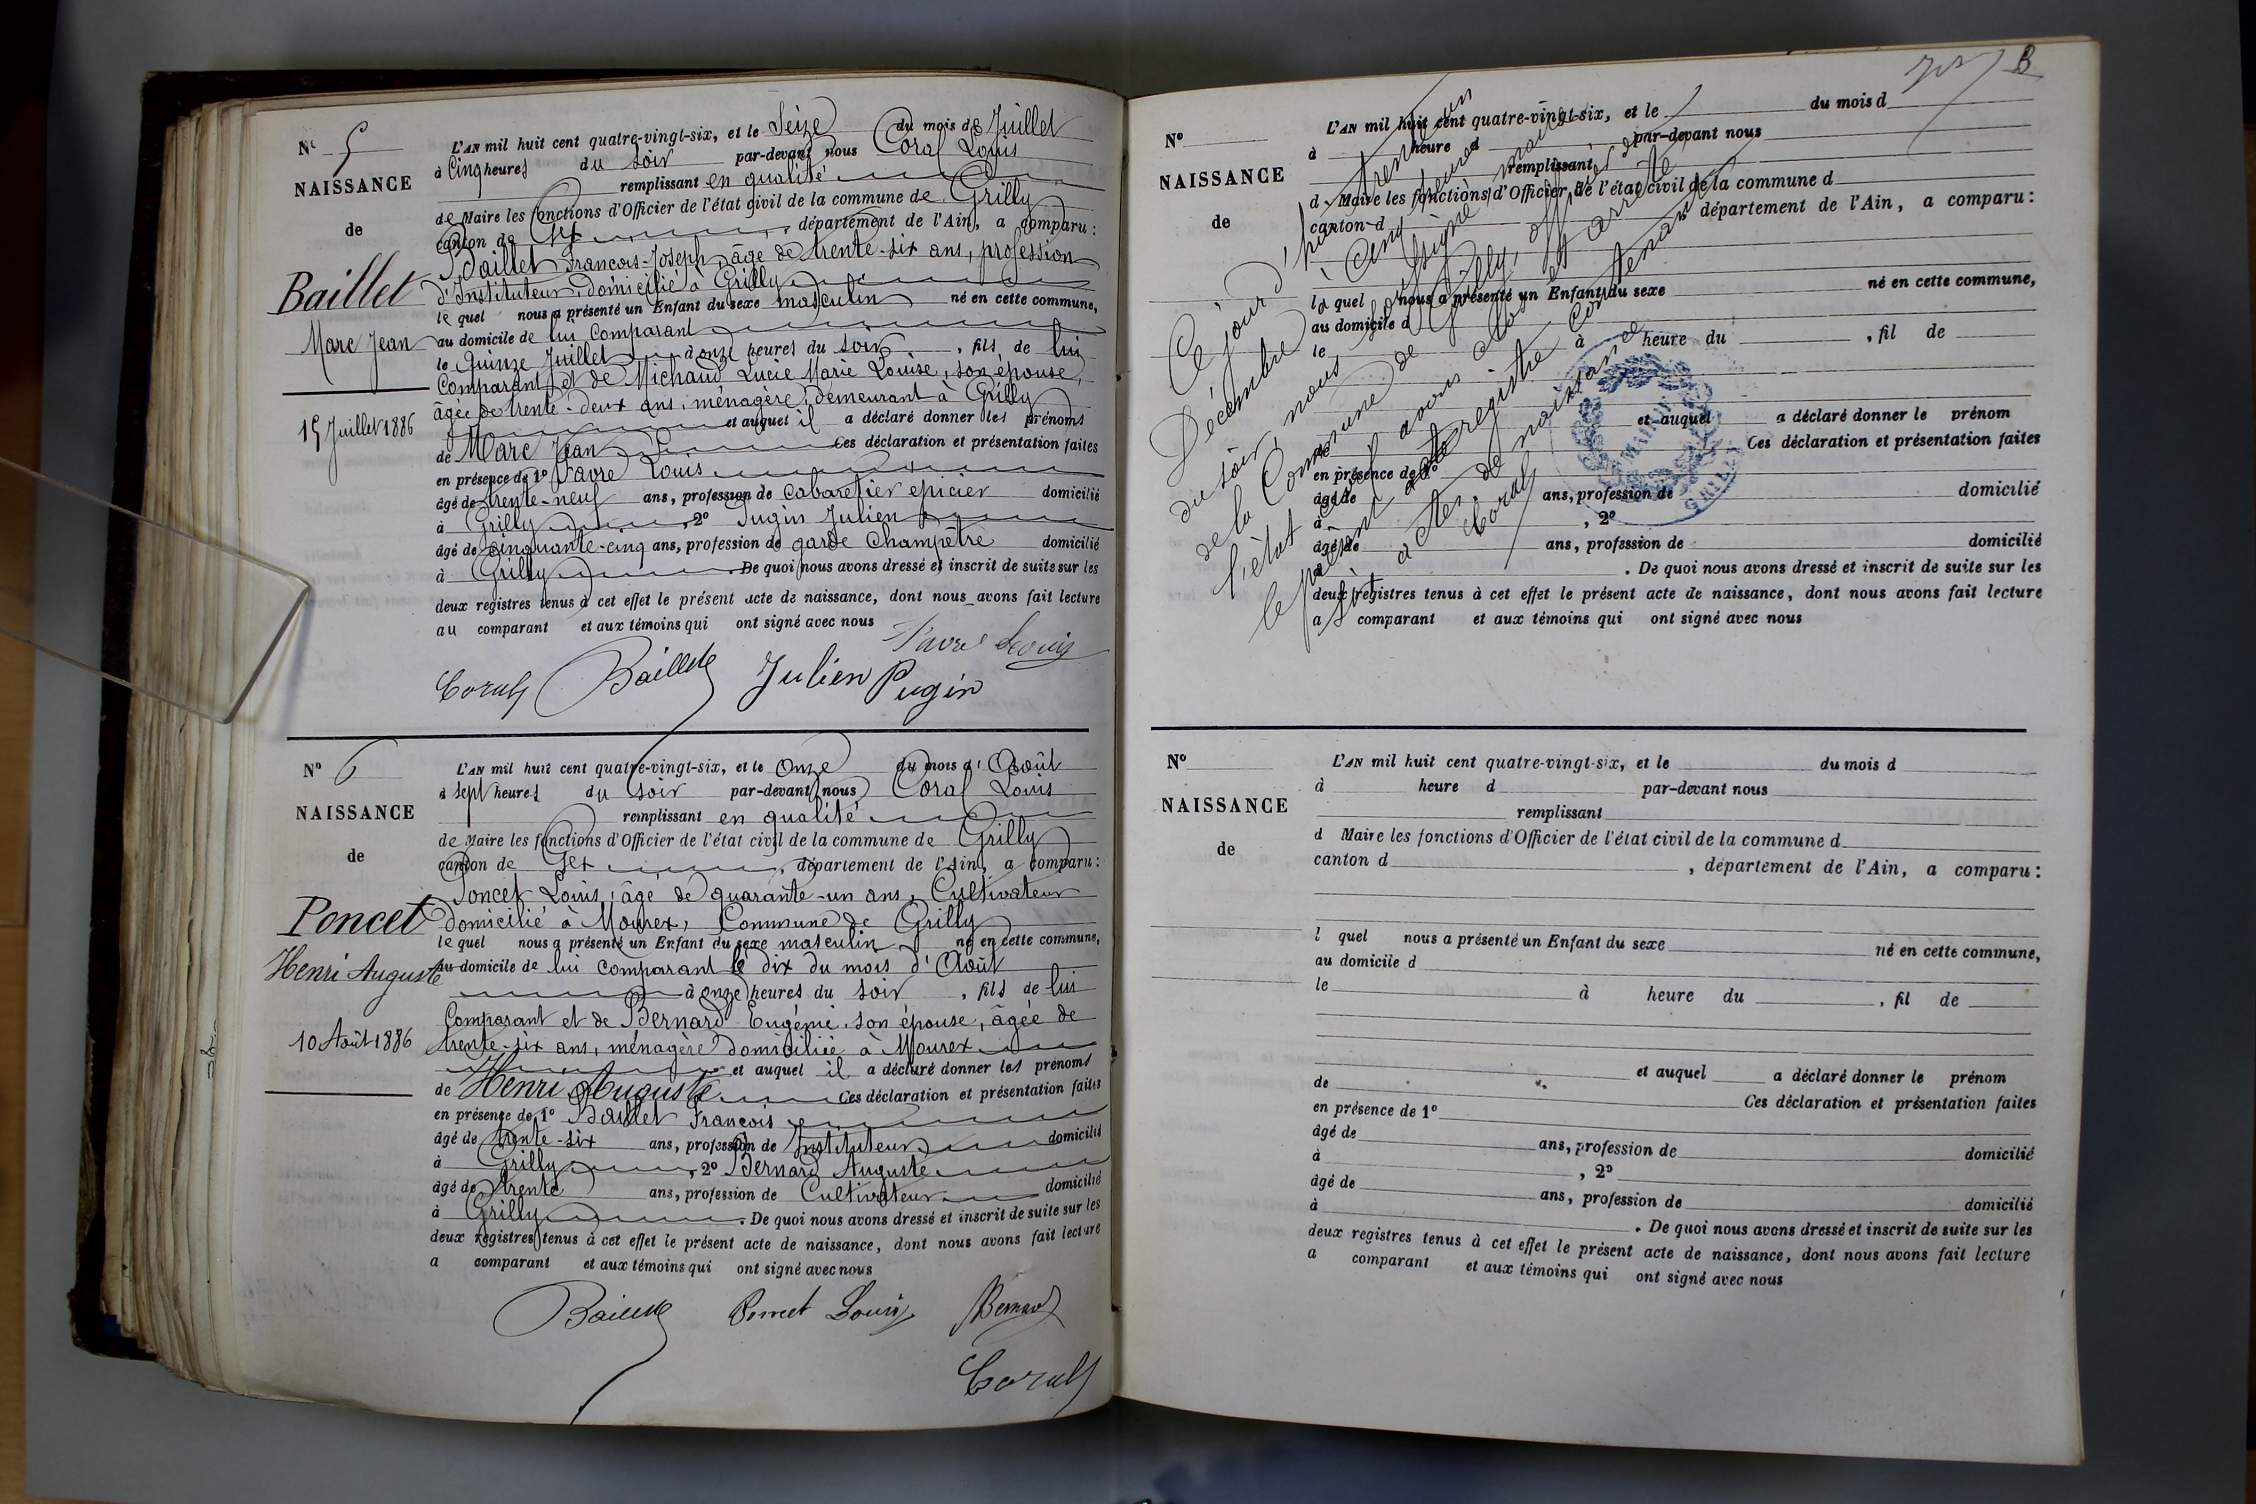 N° 5
NAISSANCE
de
Baillet
Marc Jean
15 Juillet 1886
L'AN mil huit cent quatre-vingt-six, et le Seize du mois de Juillet
à Cinq heures du soir par-devant nous Coral Louis
remplissant en qualité
de Maire les fonctions d'Officier de l'état civil de la commune de Grilly
canton de Gex, département de l'Ain, a comparu:
Baillet François-Joseph, âgé de trente-six ans, profession
d'Instituteur, domicilié à Grilly
lequel nous a présenté un Enfant du sexe masculin né en cette commune,
au domicile de lui Comparant
le Quinze Juillet à onze heures du soir, fils de lui
Comparant et de Michaud Lucie Marie Louise, son épouse,
âgée de trente-deux ans, ménagère, demeurant à Grilly
et auquel il a déclaré donner les prénoms
de Marc Jean Ces déclaration et présentation faites
en présence de 1° Favre Louis
âgé de trente-neuf ans, profession de Cabaretier épicier domicilié
à Grilly, 2° Pugin Julien
âgé de cinquante-cinq ans, profession de garde Champêtre domicilié
à Grilly De quoi nous avons dressé et inscrit de suite sur les
deux registres tenus à cet effet le présent acte de naissance, dont nous avons fait lecture
au comparant et aux témoins qui ont signé avec nous
Favre Louis
Coral Baillet Julien Pugin
N° 6
NAISSANCE
de
Poncet
Henri Auguste
10 Août 1886
L'AN mil huit cent quatre-vingt-six, et le Onze du mois d'Août
à sept heures du soir par-devant nous Coral Louis
remplissant en qualité
de Maire les fonctions d'Officier de l'état civil de la commune de Grilly
canton de Gex, département de l'Ain, a comparu:
Poncet Louis, âgé de quarante-un ans, Cultivateur
domicilié à Mourex, Commune de Grilly
lequel nous a présenté un Enfant du sexe masculin né en cette commune,
au domicile de lui comparant le dix du mois d'Août
à onze heures du soir, fils de lui
Comparant et de Bernard Eugénie, son épouse, âgée de
trente-six ans, ménagère domiciliée à Mourex
et auquel il a déclaré donner les prénoms
de Henri Auguste Ces déclaration et présentation faites
en présence de 1° Baillet François
âgé de trente-six ans, profession de Instituteur domicilié
à Grilly, 2° Bernard Auguste
âgé de trente ans, profession de Cultivateur domicilié
à Grilly. De quoi nous avons dressé et inscrit de suite sur les
deux registres tenus à cet effet le présent acte de naissance, dont nous avons fait lecture
a comparant et aux témoins qui ont signé avec nous
Baillet Poncet Louis Bernard
Coral
B
N°
NAISSANCE
de
L'AN mil huit cent quatre-vingt-six, et le du mois d
à heure d par-devant nous
remplissant
d Maire les fonctions d'Officier de l'état civil de la commune d
canton d département de l'Ain, a comparu:
l quel nous a présenté un Enfant du sexe né en cette commune,
au domicile d
le à heure du , fil de
et auquel a déclaré donner le prénom
Ces déclaration et présentation faites
en présence de 1°
âgé de ans, profession de domicilié
à , 2°
âgé de ans, profession de domicilié
. De quoi nous avons dressé et inscrit de suite sur les
deux registres tenus à cet effet le présent acte de naissance, dont nous avons fait lecture
a comparant et aux témoins qui ont signé avec nous
Ce jourd'hui trente un
Décembre à Cinq heures
du soir, nous soussigné Maire
de la Commune de Grilly, officier de
l'état civil avons clos et arrêté
le présent registre contenant
six actes de naissance
Coral
MAIRIE
GRILLY
N°
NAISSANCE
de
L'AN mil huit cent quatre-vingt-six, et le du mois d
à heure d par-devant nous
remplissant
d Maire les fonctions d'Officier de l'état civil de la commune d
canton d , département de l'Ain, a comparu:
l quel nous a présenté un Enfant du sexe né en cette commune,
au domicile d
le à heure du , fil de
et auquel a déclaré donner le prénom
de Ces déclaration et présentation faites
en présence de 1°
âgé de ans, profession de domicilié
à , 2°
âgé de ans, profession de domicilié
à . De quoi nous avons dressé et inscrit de suite sur les
deux registres tenus à cet effet le présent acte de naissance, dont nous avons fait lecture
a comparant et aux témoins qui ont signé avec nous